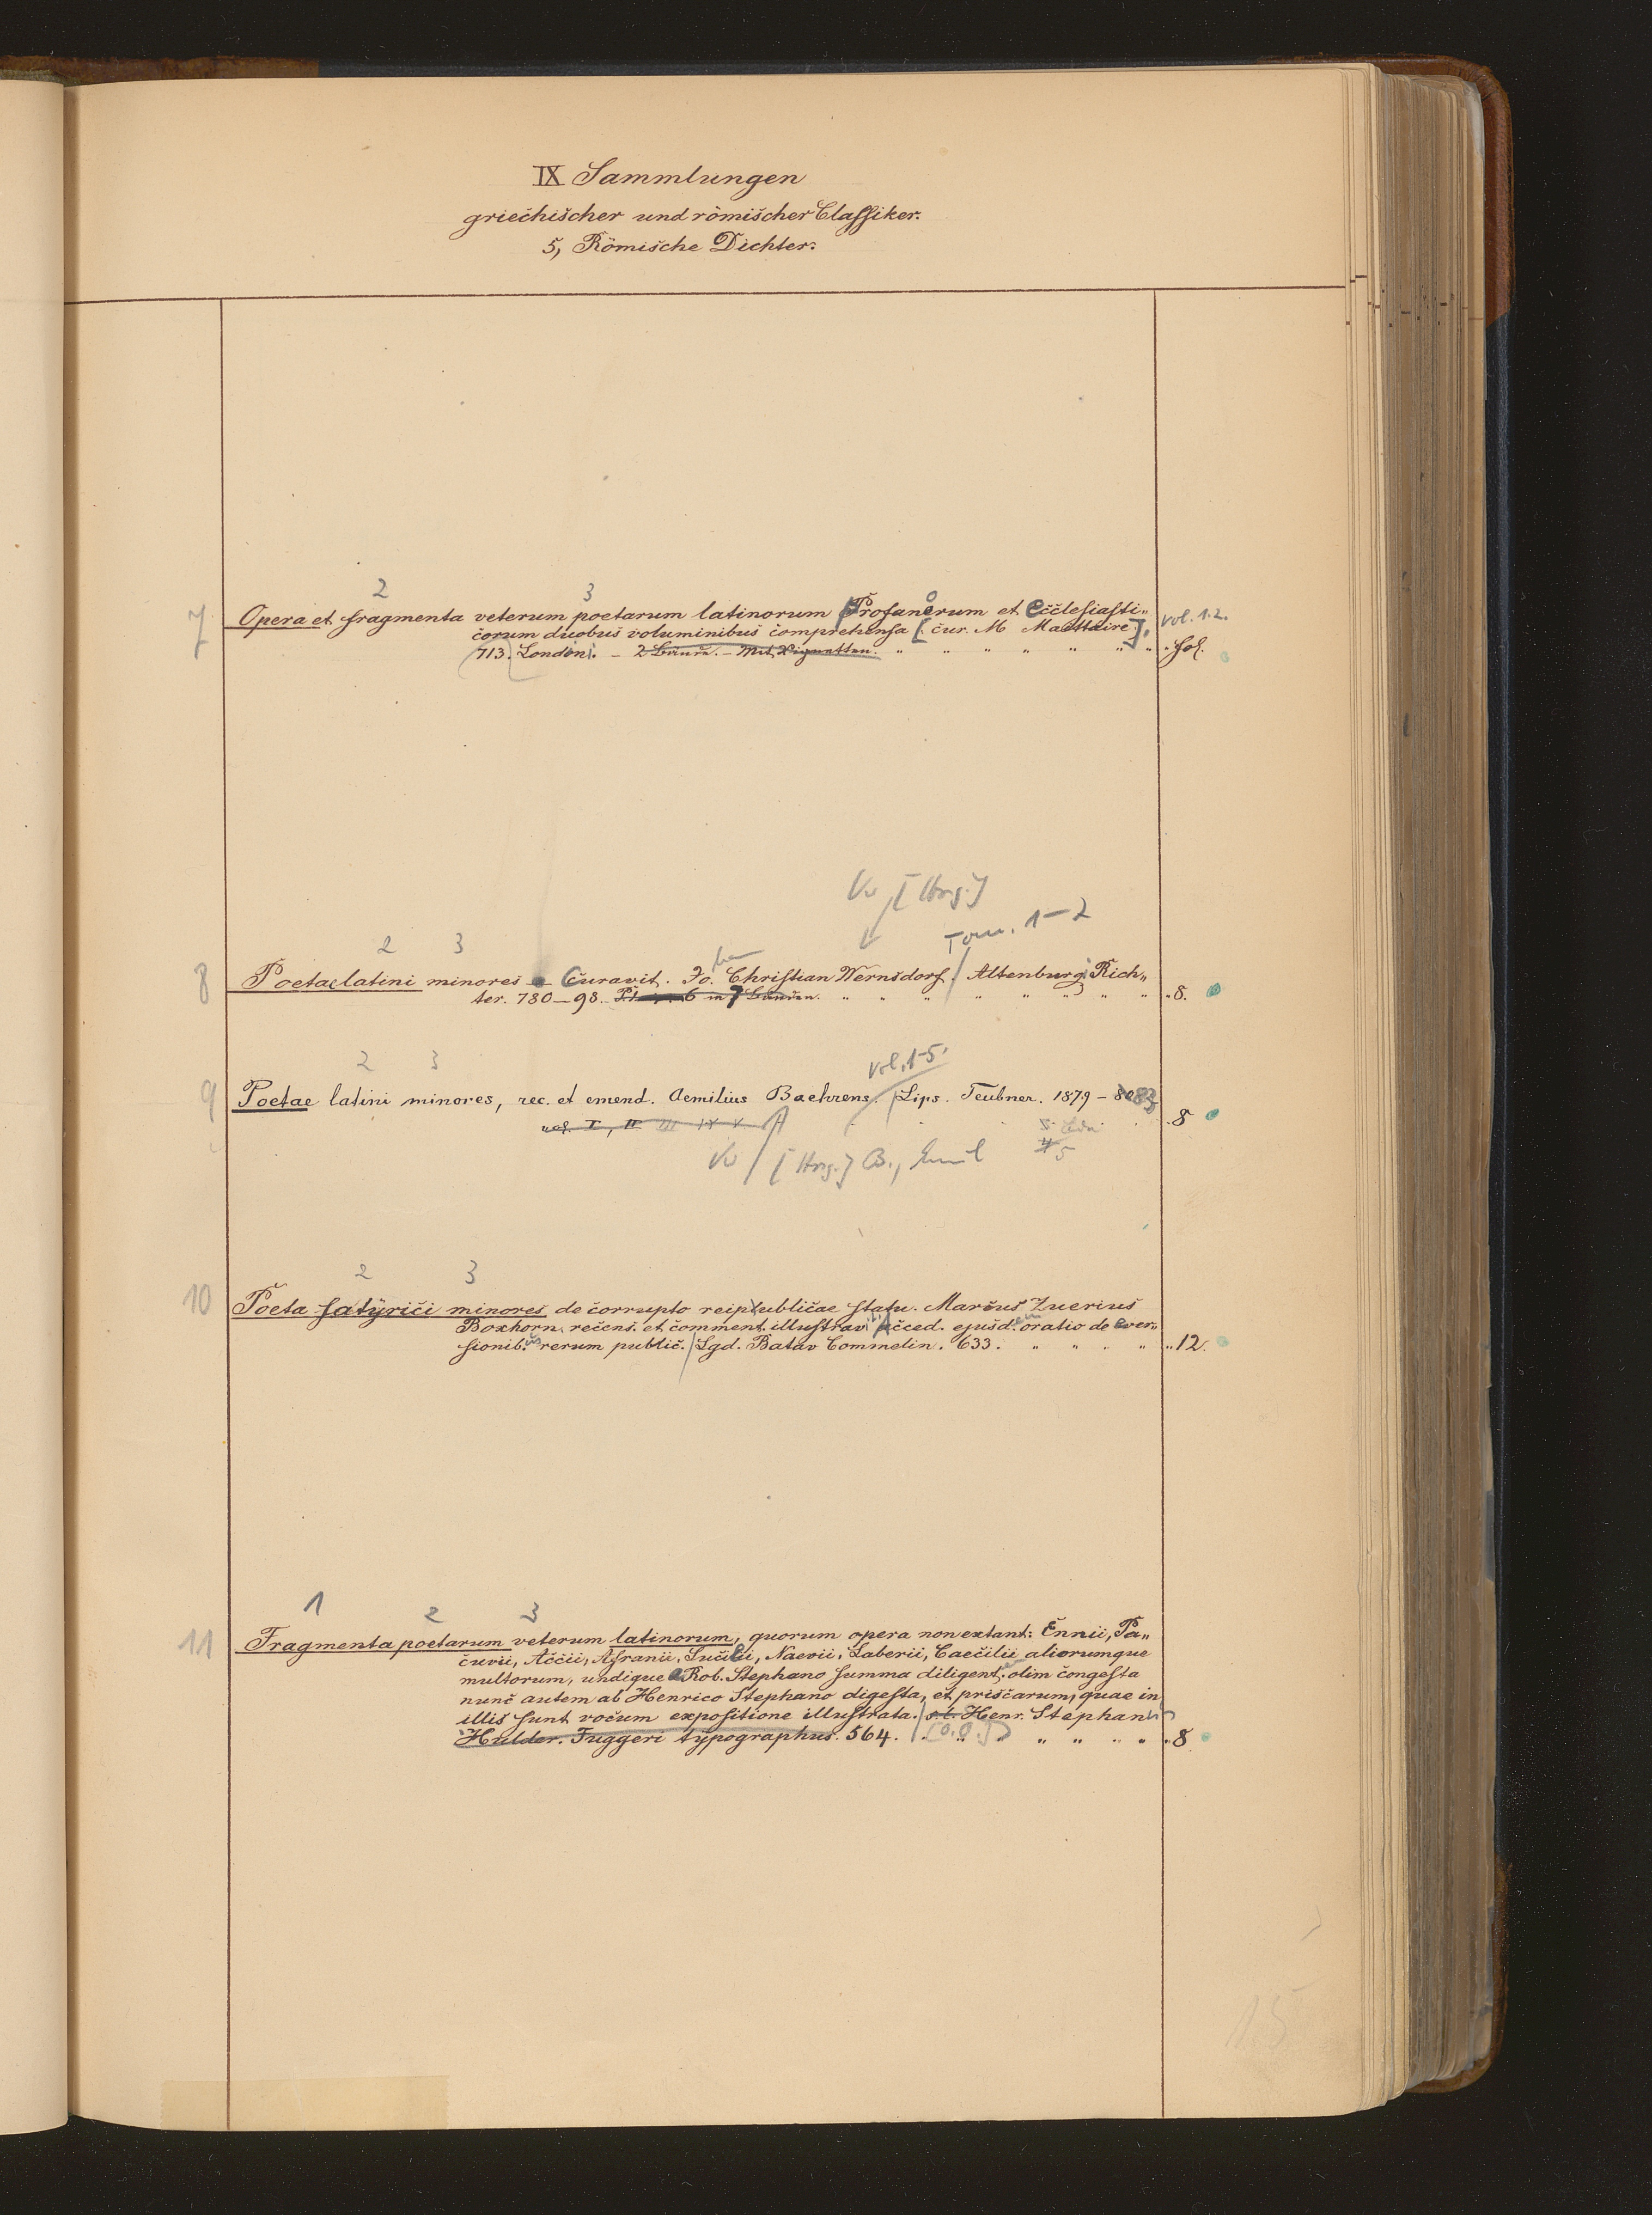 IX Sammlungen
griechischer und römischer Classiker.
5, Römische Dichter.
2 3
7 Opera et fragmenta veterum poetarum latinorum profanorum et ecclesiasti„
corum duobus voluminibus comprehensa [cur. M Maettaire], vol. 1.2.
713. Londini. – 2 Bände. – Mit Vignetten. " " " " " " " fol.
Vw [Hrsg.]
Tom. 1–2
2 3
8 Poetae latini minores Curavit. Jo. Christian Wernsdorf. Altenburgi Rich„
ter. 780–98. 6 in 7 Bänden. " " " " " " " " 8.
2 3 vol. 1-5.
9 Poetae latini minores, rec. et emend. Aemilius Baehrens. Lips. Teubner. 1879–83
vol. I, II III IV V. 8
Vw [Hrsg.] B., Emil 5
2 3
10 Poeta satÿrici minores de corrupto reipublicae statu. Marcus Zuerius
Boxhorn recens. et comment. illustravit Acced. ejusdem oratio de ever„
sionibus rerum public. Lgd. Batav Commelin. 633. " " " " 12.
1 2 3
11 Fragmenta poetarum veterum latinorum, quorum opera non extant: Ennii, Pa„
cuvii, Accii, Afranii, Lucilii, Naevii, Laberii, Caecilii aliorumque
multorum, undique a Rob. Stephano summa diligent. olim congesta
nunc autem ab Henrico Stephano digesta, et priscarum, quae in
illis sunt vocum expositione illustrata. Henr. Stephanus
Hulder. Fuggeri tÿpographus. 564. [O. O.] " " " " 8
15